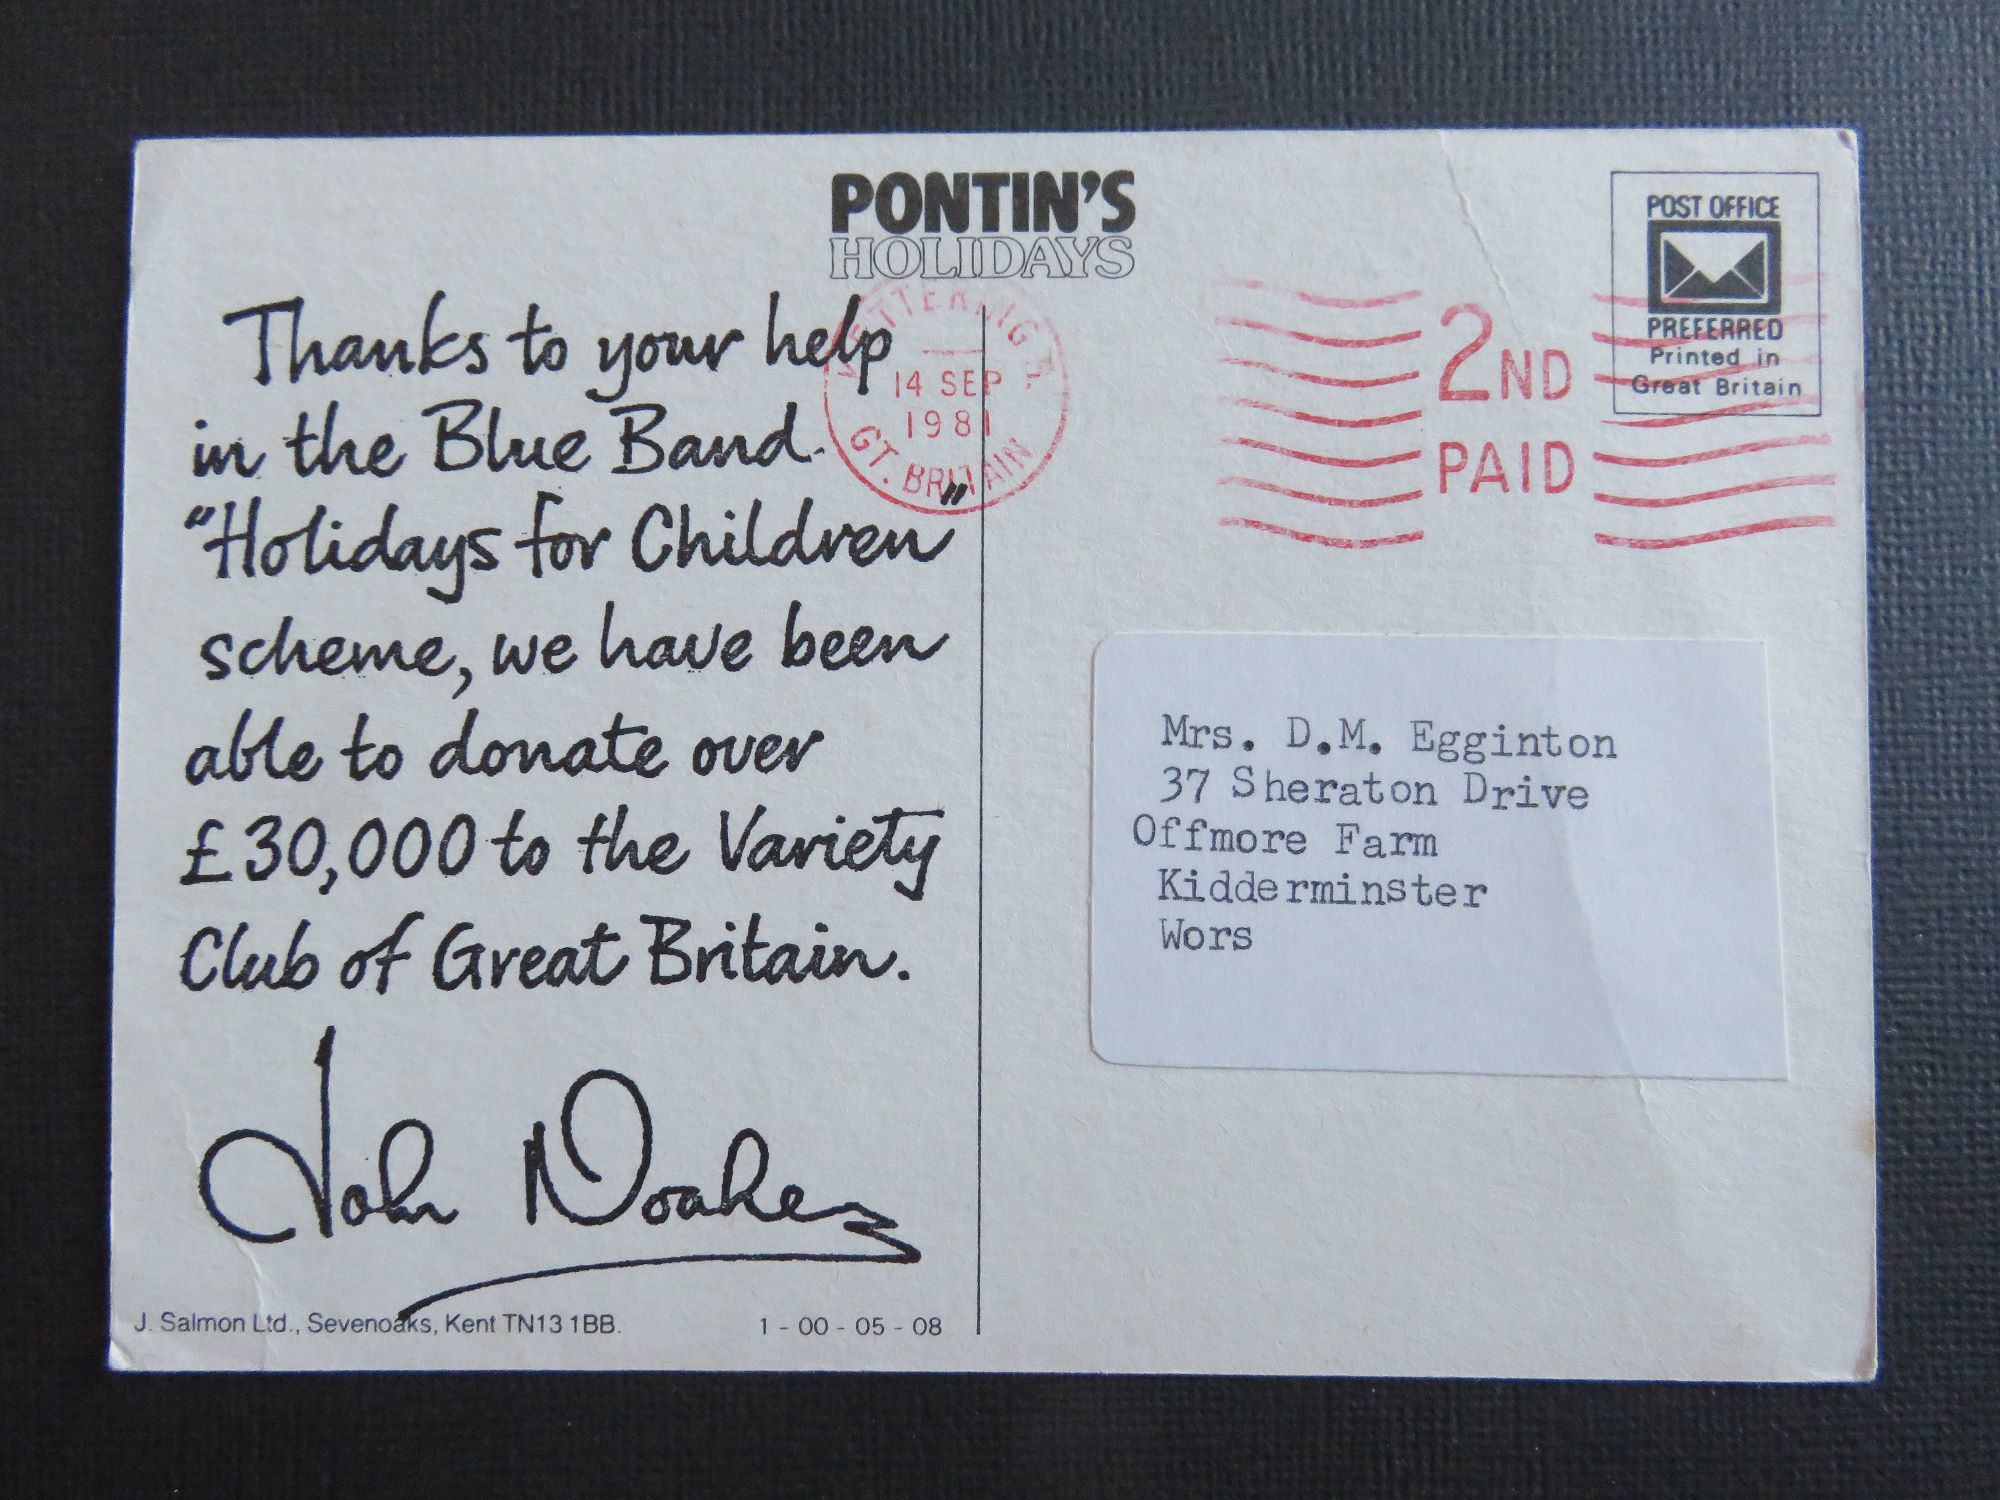 PONTIN'S
HOLIDAYS
Thanks to your help
in the Blue Band
"Holidays for Children"
scheme, we have been
able to donate over
£30,000 to the Variety
Club of Great Britain.
John Noakes
J. Salmon Ltd., Sevenoaks, Kent TN13 1BB.
1 - 00 - 05 - 08
KETTERING
14 SEP
1981
GT. BRITAIN
2ND
PAID
POST OFFICE
PREFERRED
Printed in
Great Britain
Mrs. D.M. Egginton
37 Sheraton Drive
Offmore Farm
Kidderminster
Wors